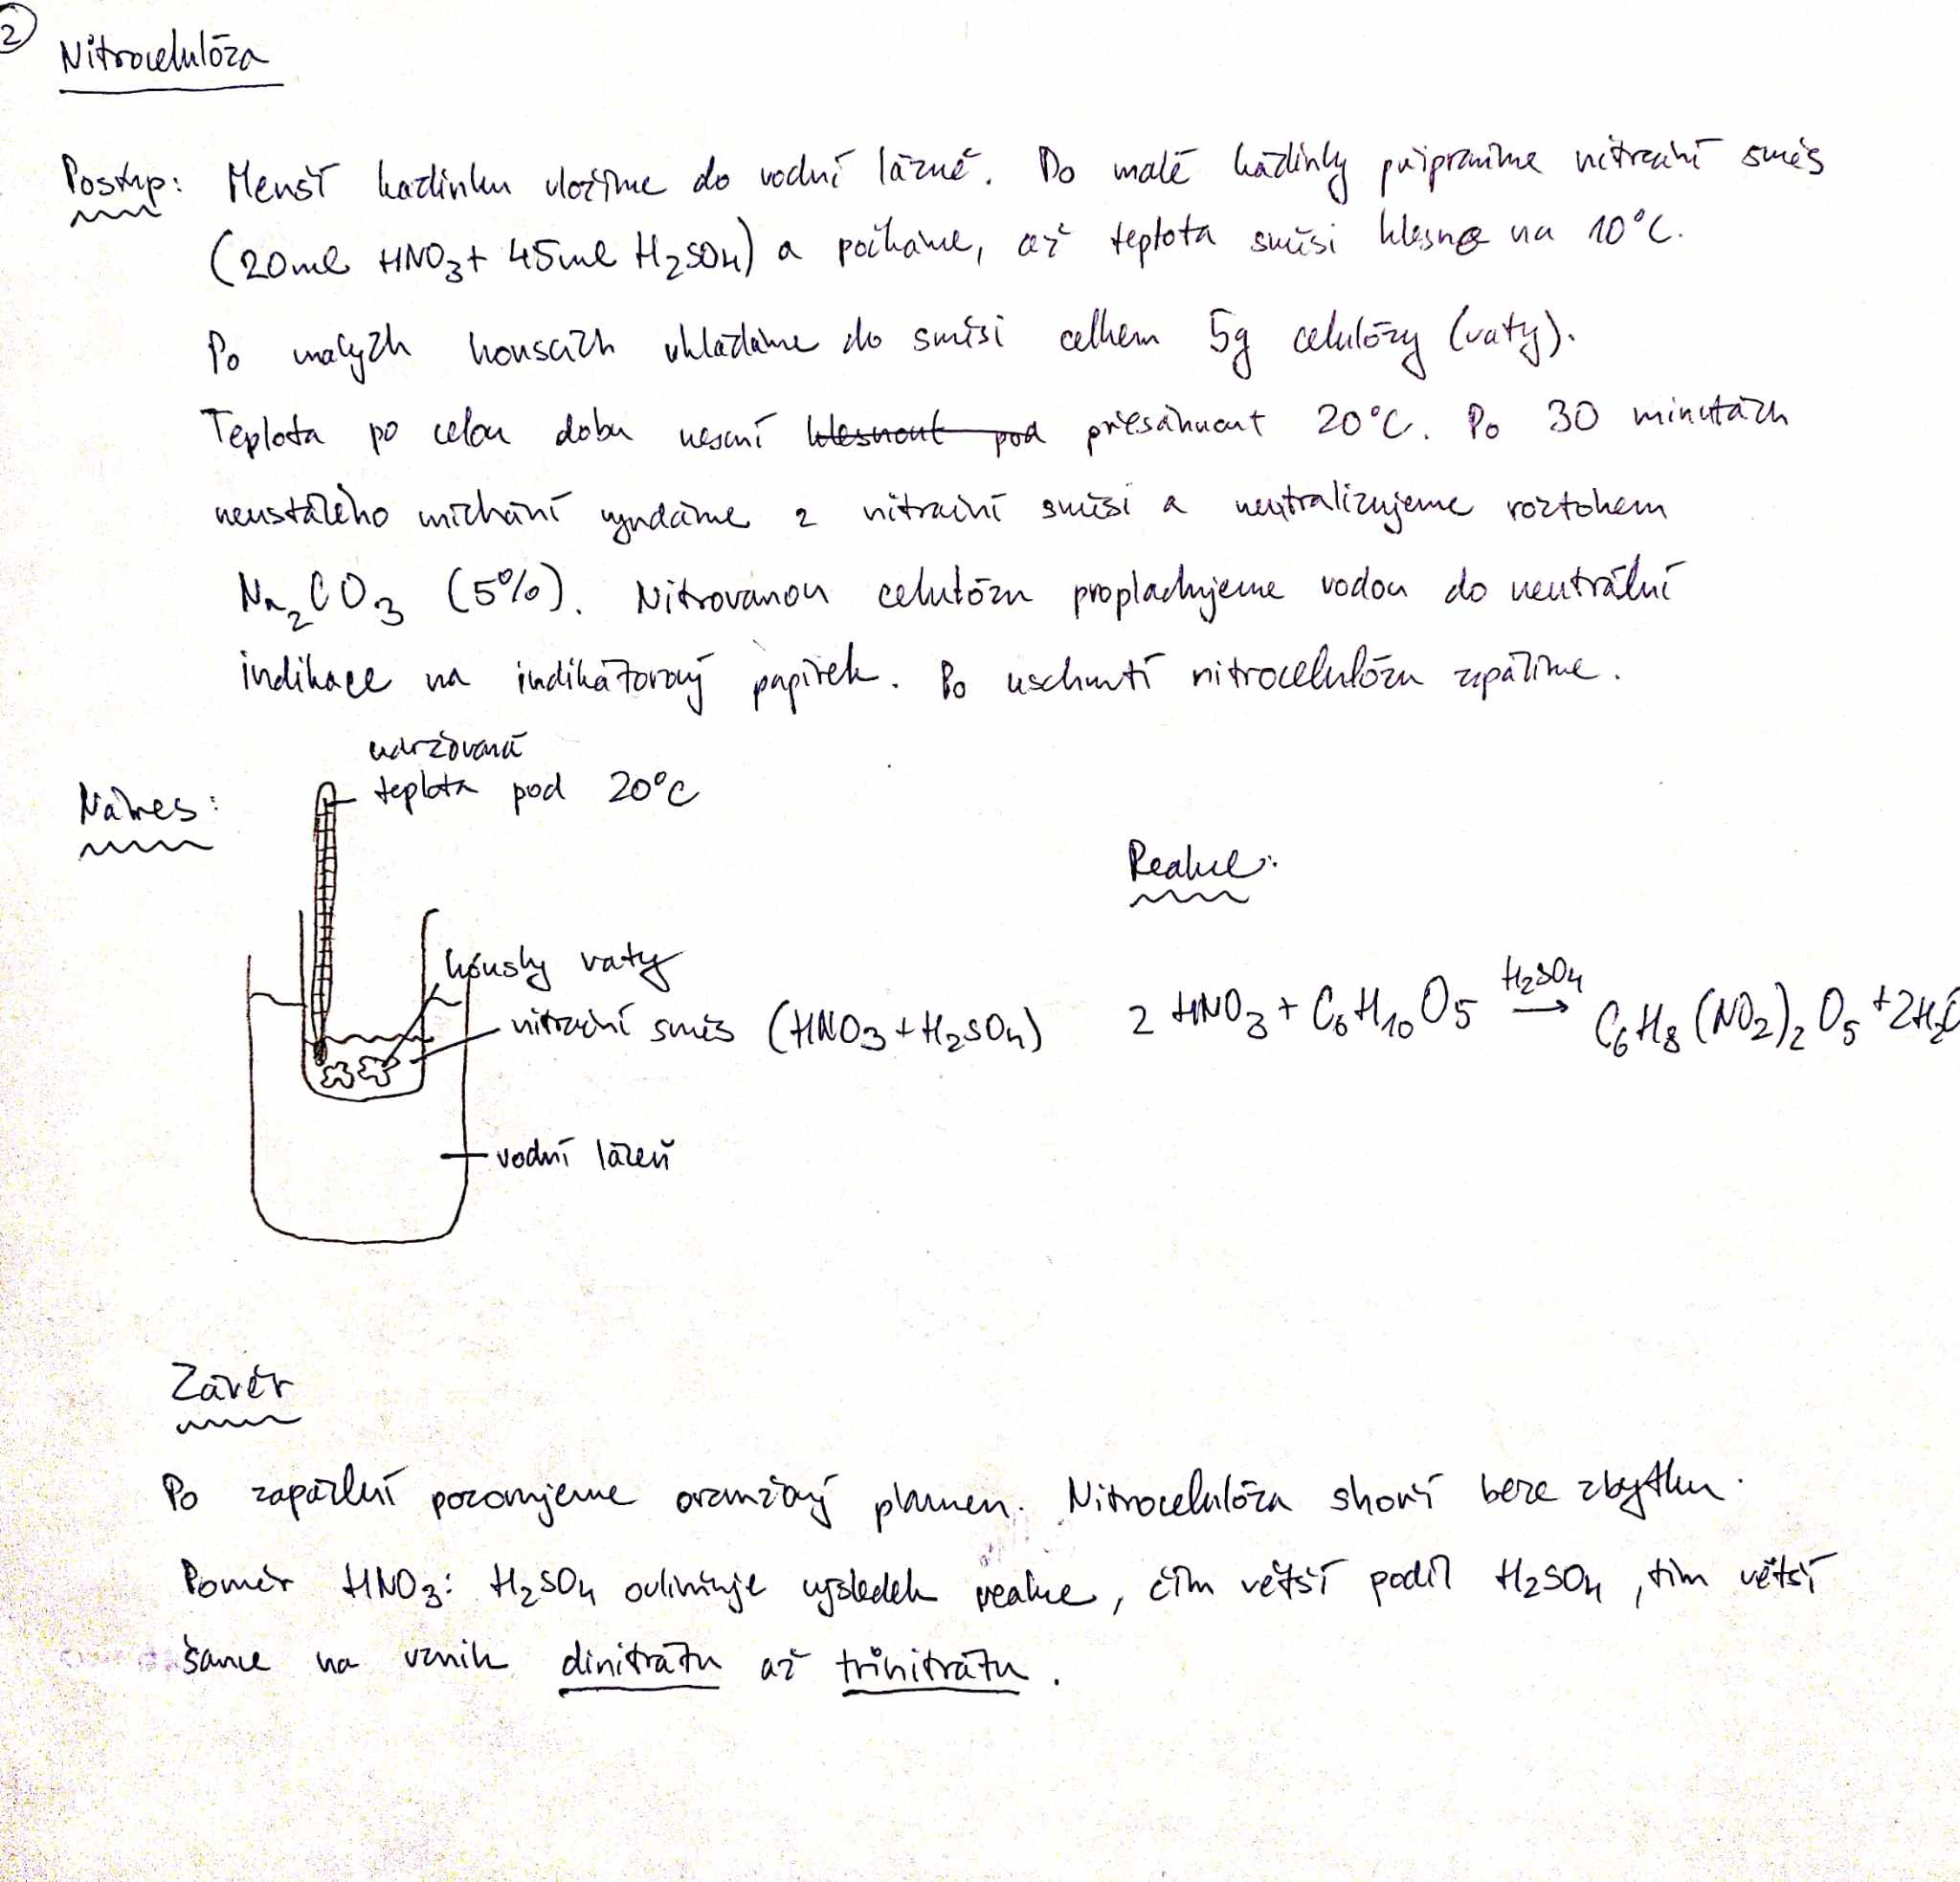 2
Nitrocelulóza
Postup: Menší kádinku vložíme do vodní lázně. Do malé kádinky připravíme nitrační směs
(20ml HNO₃ + 45ml H₂SO₄) a počkáme, až teplota směsi klesne na 10°C.
Po malých kouscích vkládáme do směsi celkem 5g celulózy (vaty).
Teplota po celou dobu nesmí klesnout pod přesáhnout 20°C. Po 30 minutách
neustálého míchání vyndáme z nitrační směsi a neutralizujeme roztokem
Na₂CO₃ (5%). Nitrovanou celulózu proplachujeme vodou do neutrální
indikace na indikátorový papírek. Po uschnutí nitrocelulózu zapálíme.
Nákres:
udržovaná
teplota pod 20°C
kousky vaty
nitrační směs (HNO₃ + H₂SO₄)
vodní lázeň
Reakce:
2 HNO₃ + C₆H₁₀O₅ H₂SO₄ → C₆H₈(NO₂)₂O₅ + 2H₂O
Závěr
Po zapálení pozorujeme oranžový plamen. Nitrocelulóza shoří beze zbytku.
Poměr HNO₃ : H₂SO₄ ovlivňuje výsledek reakce, čím větší podíl H₂SO₄, tím větší
šance na vznik dinitrátu až trinitrátu.